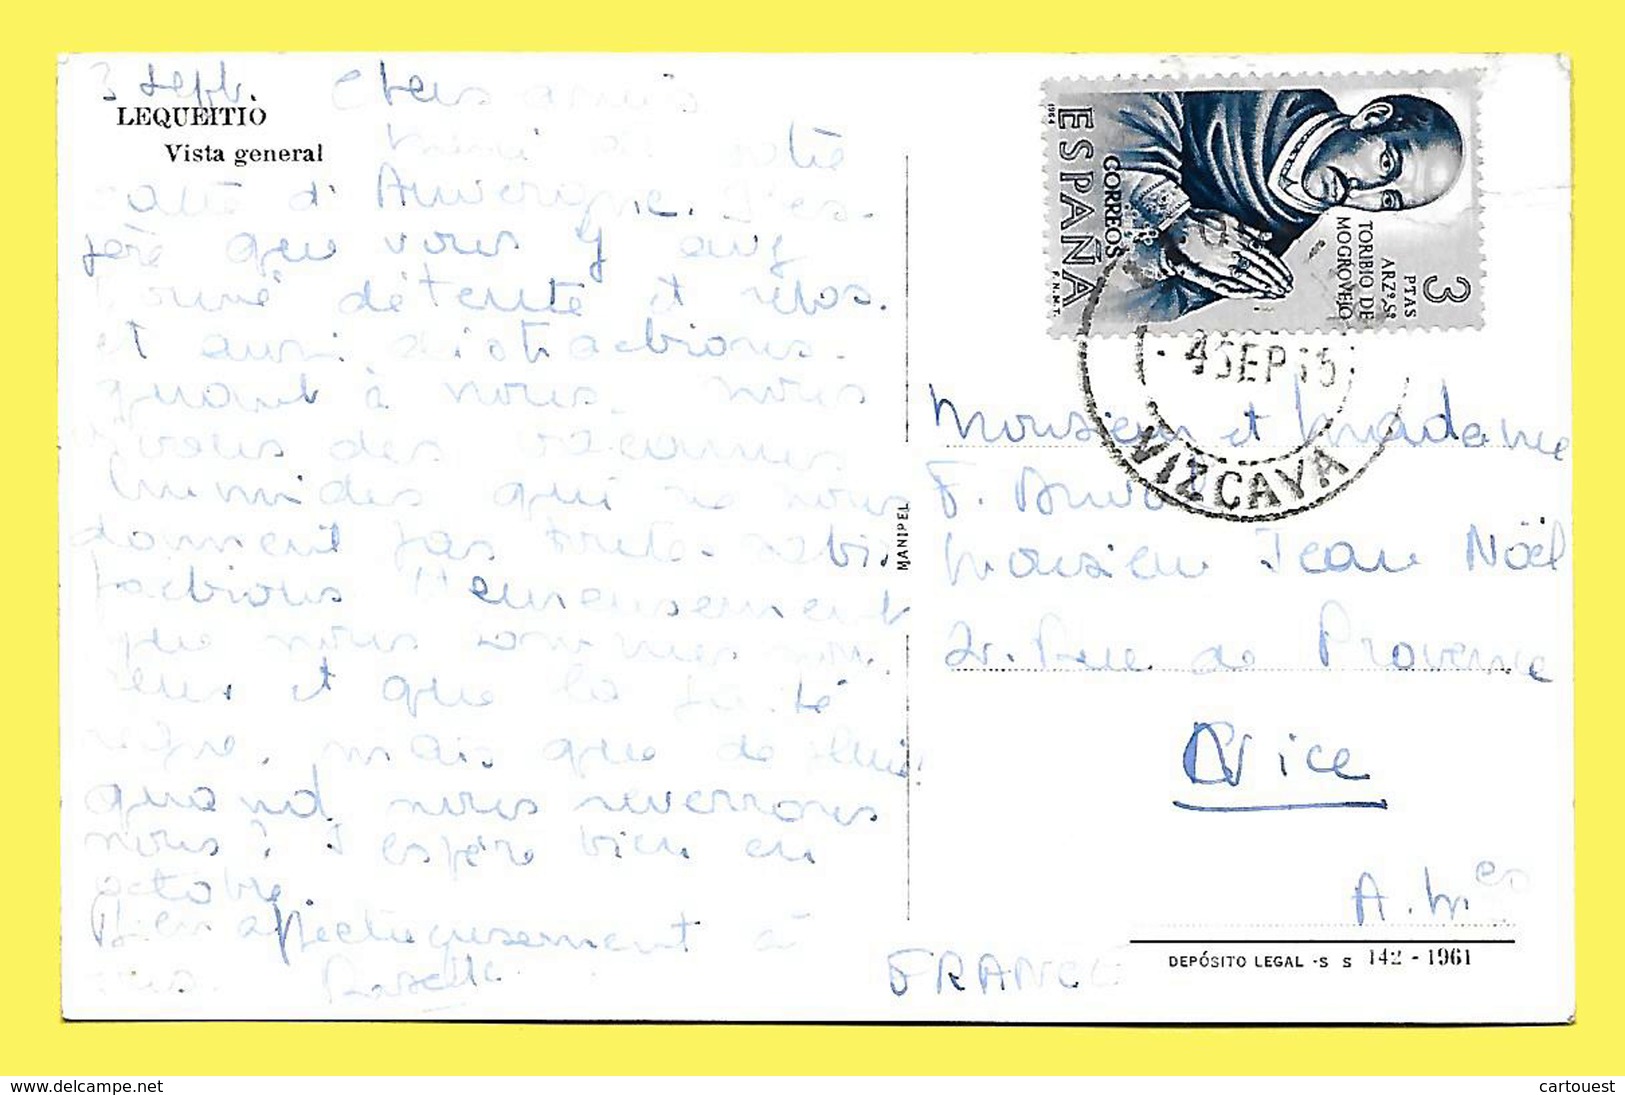 3 sept. Chers amis
LEQUEITIO
Vista general
merci de votre
carte d'Auvergne. J'es-
père que vous y avez
trouvé détente et repos.
et aussi distractions.
quant à nous. nous
avons des vacances
humides qui ne nous
donnent pas toutes satis
factions. Heureusement
que nous sommes
et que la
mais que de pluie!
quand nous reverrons
nous? J'espère bien en
octobre.
Bien affectueusement à
vous.
MANIPEL
ESPAÑA
CORREOS
1964
F.N.M.T.
3
PTAS
ARZº.Sº
TORIBIO DE
MOGROVEJO
4 SEP 65
VIZCAYA
Monsieur et Madame
F.
Monsieur Jean Noël
2. Rue de Provence
Nice
A. Mes
FRANCE
DEPÓSITO LEGAL - S S 142 - 1961
www.delcampe.net
cartouest